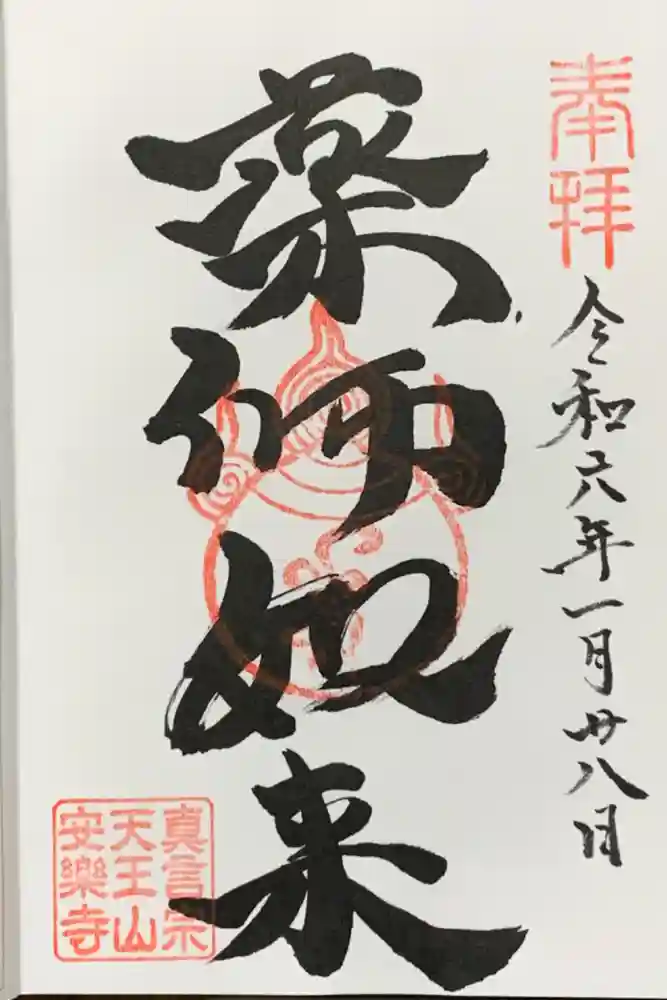 奉拝
令和六年一月廿八日
薬師如来
真言宗
天王山
安樂寺